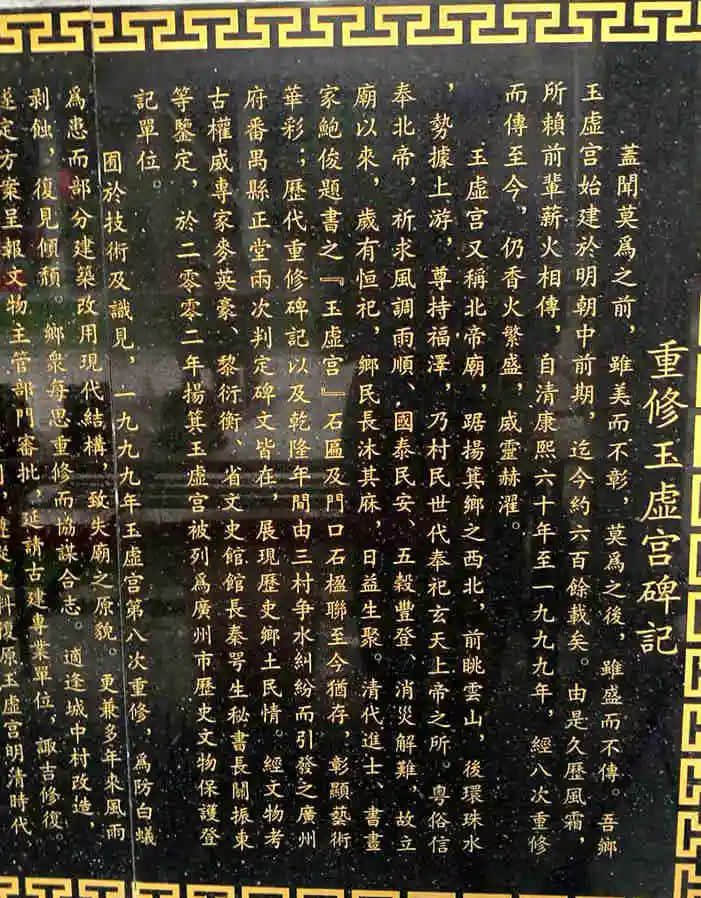 重修玉虛宮碑記
蓋聞莫爲之前，雖美而不彰，莫爲之後，雖盛而不傳。吾鄉
玉虛宮始建於明朝中前期，迄今約六百餘載矣。由是久歷風霜，
所賴前輩薪火相傳，自清康熙六十年至一九九九年，經八次重修
而傳至今，仍香火繁盛，威靈赫濯。
玉虛宮又稱北帝廟，踞揚箕鄉之西北，前眺雲山，後環珠水
，勢據上游，尊持福澤，乃村民世代奉祀玄天上帝之所。粵俗信
奉北帝，祈求風調雨順、國泰民安、五穀豐登、消災解難，故立
廟以來，歲有恒祀，鄉民長沐其庥，日益生聚。清代進士、書畫
家鮑俊題書之『玉虛宮』石匾及門口石楹聯至今猶存，彰顯藝術
華彩；歷代重修碑記以及乾隆年間由三村争水糾紛而引發之廣州
府番禺縣正堂兩次判定碑文皆在，展現歷史鄉土民情。經文物考
古權威專家麥英豪、黎衍衡、省文史館館長秦咢生秘書長關振東
等鑒定，於二零零二年揚箕玉虛宮被列爲廣州市歷史文物保護登
記單位。
囿於技術及識見，一九九九年玉虛宮第八次重修，爲防白蟻
爲患而部分建築改用現代結構，致失廟之原貌。更兼多年來風雨
剥蝕，復見傾頹。鄉衆每思重修而協謀合志。適逢城中村改造，
遂定方案呈報文物主管部門審批，延請古建專業單位，諏吉修復。
史料復原玉虛宮明清時代